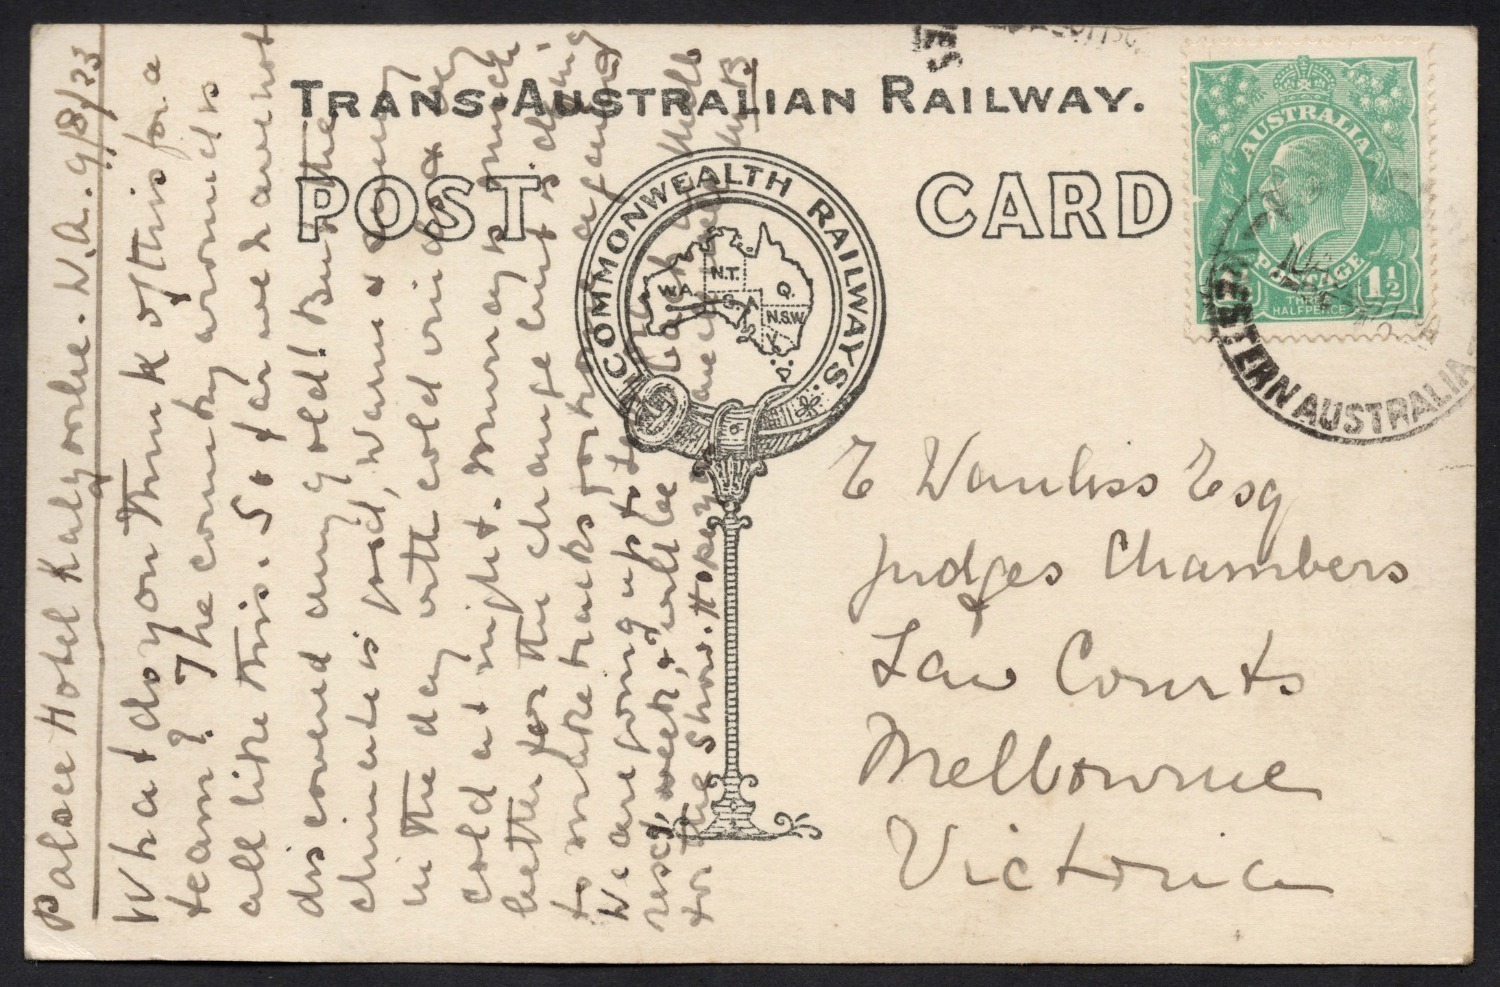 TRANS-AUSTRALIAN RAILWAY.
POST CARD
COMMONWEALTH RAILWAYS.
W.A.
N.T.
S.A.
Q.
N.S.W.
V.
AUSTRALIA
POSTAGE
1½
THREE
HALFPENCE
1½
WESTERN AUSTRALIA
Palace Hotel Kalgoorlie. W.A. 9/8/23
What do you think of this for a
team? The country around is
all like this. So far we have not
discovered any gold. But the
climate is good, warm & sunny
in the day with cold winds &
cold at night. Murray is much
better for the change but is
to make tracks for
We are going up to
next week, & will be back
for the Show.
E Wanliss Esq
Judges Chambers
Law Courts
Melbourne
Victoria